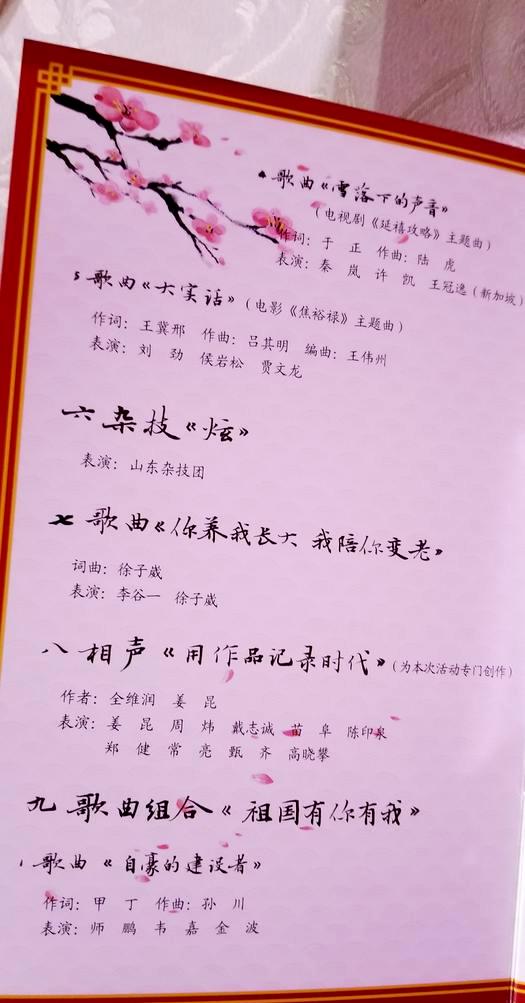 4 歌曲《雪落下的声音》
（电视剧《延禧攻略》主题曲）
作词：于 正 作曲：陆 虎
表演：秦 岚 许 凯 王冠逸（新加坡）
5 歌曲《大实话》（电影《焦裕禄》主题曲）
作词：王冀邢 作曲：吕其明 编曲：王伟州
表演：刘 劲 侯岩松 贾文龙
六 杂技《炫》
表演：山东杂技团
七 歌曲《你养我长大 我陪你变老》
词曲：徐子崴
表演：李谷一 徐子崴
八 相声《用作品记录时代》（为本次活动专门创作）
作者：全维润 姜 昆
表演：姜 昆 周 炜 戴志诚 苗 阜 陈印泉
郑 健 常 亮 甄 齐 高晓攀
九 歌曲组合《祖国有你有我》
1 歌曲《自豪的建设者》
作词：甲 丁 作曲：孙 川
表演：师 鹏 韦 嘉 金 波